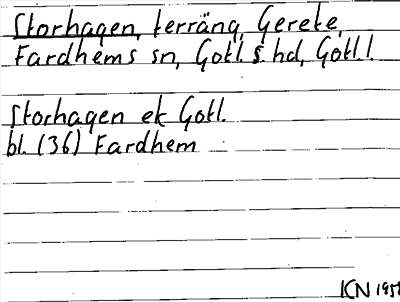 Storhagen, terräng, Gerete,
Fardhems sn, Gotl. s. hd, Gotl. l.
Storhagen ek Gotl.
bl. (36) Fardhem
ICN 1951